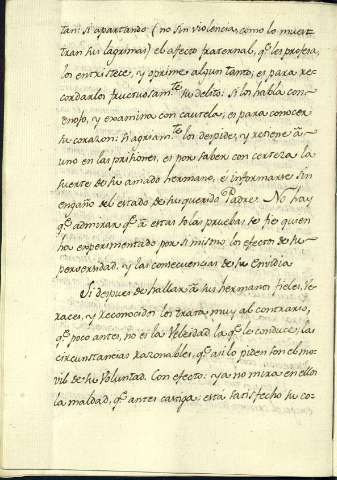 tan: si apartando (no sin violencia, como lo mues-
tran sus lagrimas) el afecto fraternal, q.e les profesa,
los entristece, y oprime algun tanto; es para re-
cordarlos fructuosam.te su delito: Si los habla con
enojo, y examina con cautela; es para conocer
su corazon: Si agriam.te los despide, y retiene â
uno en las prisiones, es por saber con certeza la
suerte de su amado hermano, e informarse sin
engaño del estado de su querido Padre. No hay
q.e admirar q.e â estas solas pruebas se fie quien
ha experimentado por si mismo los efectos de su
perversidad, y las consecuencias de su Envidia
Si despues de hallar â sus hermanos fieles, Ve-
races, y reconocidos los trata muy al contrario,
q.e poco antes, no es la Veleidad la q.e le conduce; las
circunstancias razonables, q.e asi lo piden son el mo-
vil de su Voluntad. Con efecto: ya no mira en ellos
la maldad, q.e antes castiga: esta satisfecho su co-